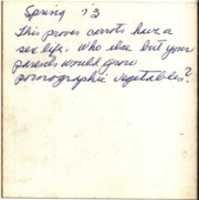 Spring '73
This proves carrots have a
sex life. Who else but your
parents would grow
pornographic vegetables?